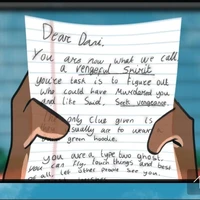 Dear Dani,
You are now what we call
a vengeful Spirit
you're task is to Figure out
who could have Murdered you
and like Said, Seek vengeance.
only Clue given is
usually are to wear a
green hoodie.
you are a type two ghost.
you can fly, touch things and best
of all, let other people see you.